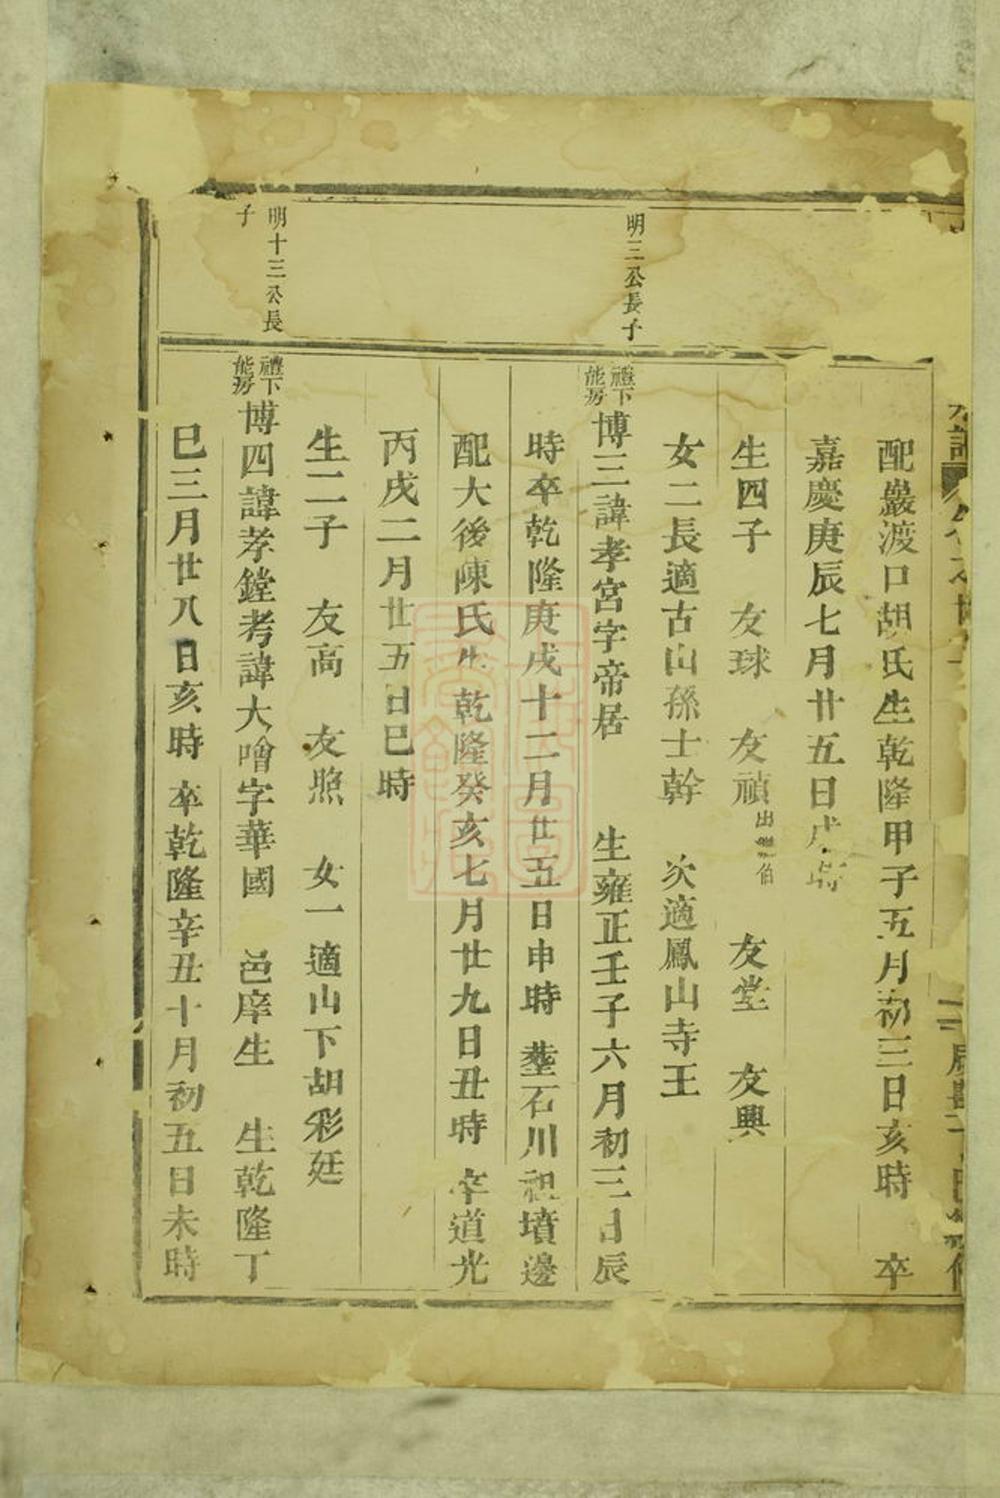 配巖渡口胡氏生乾隆甲子五月初三日亥時　卒
嘉慶庚辰七月廿五日戌時
生四子　友球　友禎出繼伯　友堂　友興
女二長適古山孫士幹　次適鳳山寺王
明三公長子
禮下能房博三諱孝宮字帝居　生雍正壬子六月初三日辰
時卒乾隆庚戌十二月廿五日申時　塟石川祖墳邊
配大後陳氏生乾隆癸亥七月廿九日丑時　卒道光
丙戌二月廿五日巳時
生二子　友高　友照　女一適山下胡彩廷
明十三公長子
禮下能房博四諱孝鏜考諱大噌字華國　邑庠生　生乾隆丁
巳三月廿八日亥時　卒乾隆辛丑十月初五日未時